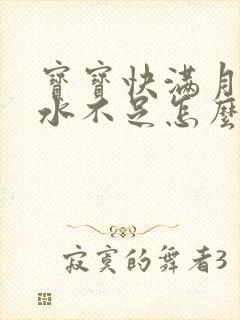 寶寶快滿月
水不足怎麼
寂寞的舞者3